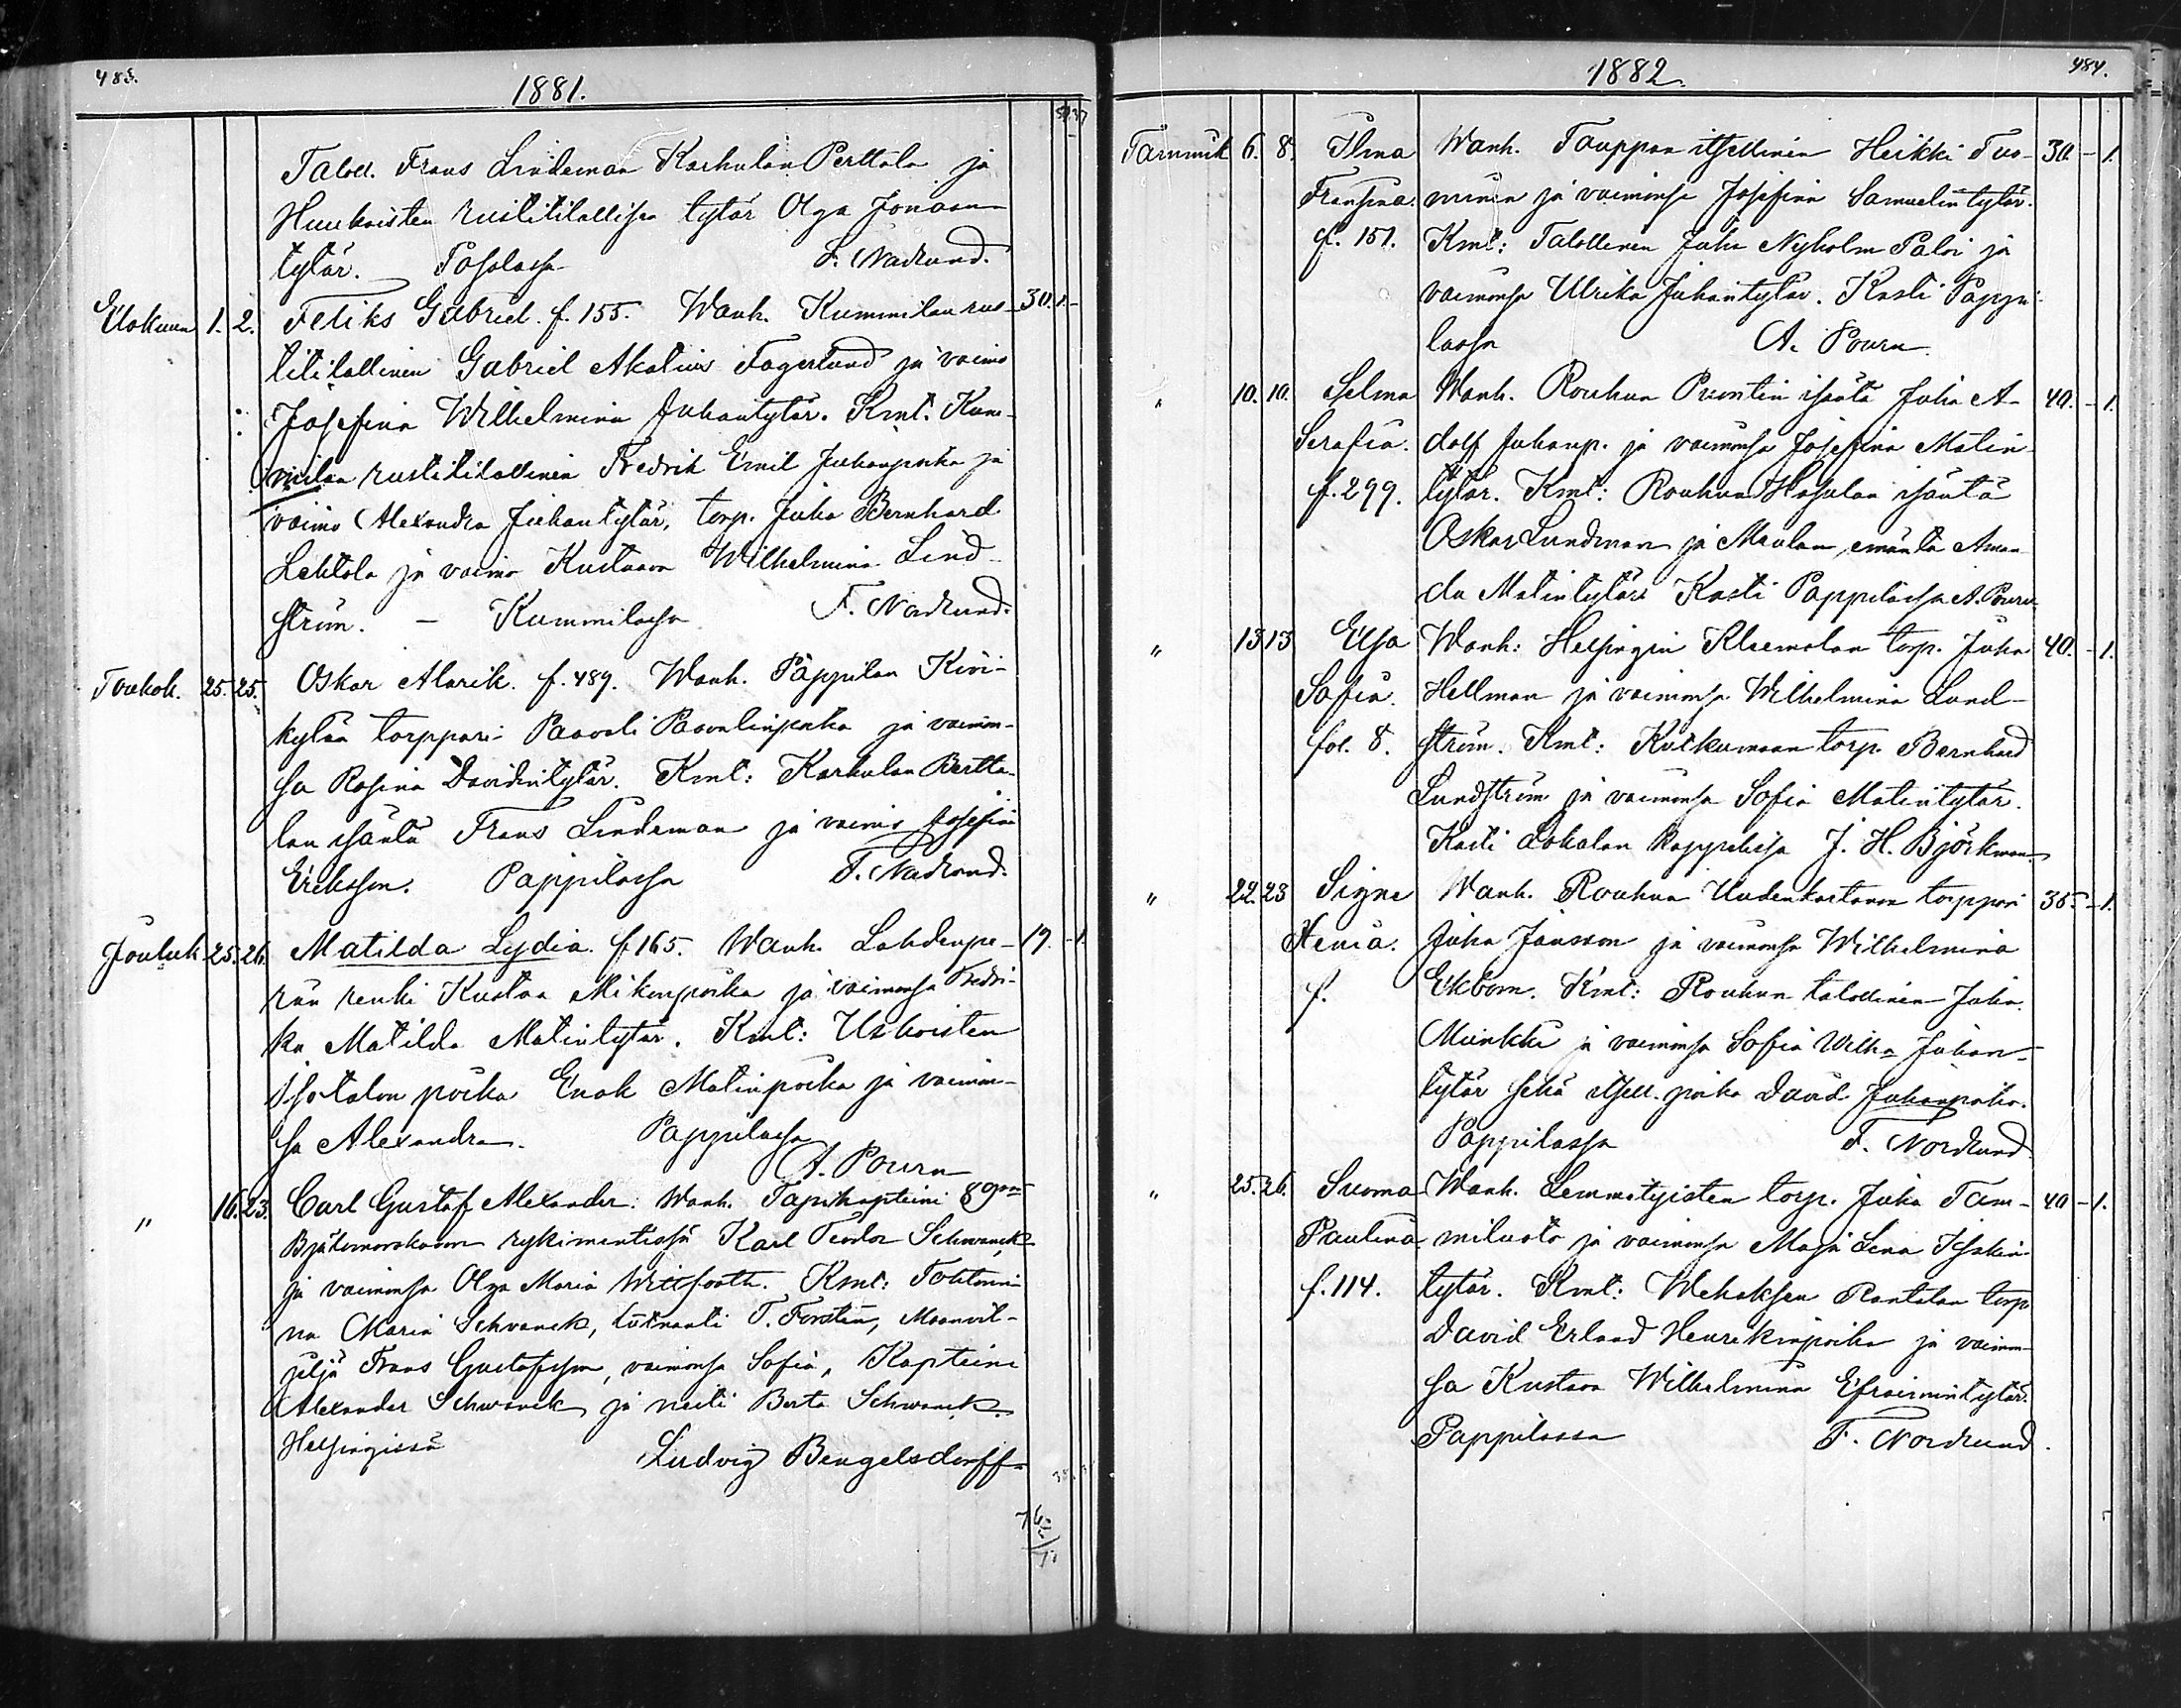 483.
1881.
Taloll. Frans Lindeman Karhulan Perttala ja
Huukaisten rustitilallisen tytär Olga Jonaan
tytär. F. Nordlund.
Elokuun 1. 2. Feliks Gabriel. f. 155. Wanh. Kummilan rus- 30. 1. -
titilallinen Gabriel Akatius Fagerlund ja vaimo
Josefina Wilhelmina Juhantytär. Kmt. Kum-
milan rustitilallinen Fredrik Emil Juhanpoika ja
vaimo Alexandra Juhantytär, torp. Juha Bernhard
Lehtola ja vaimo Kustaava Wilhelmina Lind-
ström. – Kummilassa F. Nordlund.
Toukok. 25. 25. Oskar Alarik. f. 489. Wanh. Pappilan Kivi-
kylän torppari Paavali Paavalinpoika ja vaimon-
sa Rosina Davidintytär. Kmt: Karhulan Pertta-
lan isäntä Frans Lindeman ja vaimo Josefina
Eriksson. Pappilassa F. Nordlund.
Jouluk 25. 26. Matilda Lydia. f 165. Wanh. Lahdenpe- 19. - 1.
rän renki Kustaa Mikonpoika ja vaimonsa Fredri-
ka Matilda Matintytär. Kmt: Uskoisten
Isotalon poika Enok Matinpoika ja vaimon-
sa Alexandra. Pappilassa
A. Pouru
" 16. 23. Carl Gustaf Alexander. Wanh. Tapikapteini 89nen
Bjälomorskoon rykimentissä Karl Teodor Schwanck
ja vaimonsa Olga Maria Wittfooth. Kmt: Tohtorin-
na Maria Schvanck, lutnantti T. Forstén, Maanvil-
jeljä Frans Gustafsson, vaimonsa Sofia, Kapteini
Alexander Schwanck ja neiti Berta Schwanck.
Helsingissä Ludvig Bengelsdorff
1882.
484.
Tammik 6. 8. Ilma Wanh. Tauppan itsellinen Heikki Tuo- 30. - 1.
Fransina. minen ja vaimonsa Josefina Samuelintytär.
f. 151. Kmt: Talollinen Juha Nyholm Palvi ja
vaimonsa Ulrika Juhantytär. Kasti Pappi-
lassa A. Pouru.
" 10. 10. Selma Wanh. Rouhun Pruntin isäntä Juha A- 40. - 1.
Serafia. dolf Juhanp. ja vaimonsa Josefina Matin-
f. 299. tytär. Kmt: Rouhun Hosulan isäntä
Oskar Lundman ja Maulan emäntä Aman-
da Matintytär. Kasti Pappilassa A. Pouru
" 13 13 Elsa Wanh: Helsingin Kleemolan torp. Juha 40. - 1.
Sofia. Hellman ja vaimonsa Wilhelmina Lund-
fol. 8. ström. Kmt: torp. Bernhard
Lundström ja vaimonsa Sofia Matintytär.
Kasti Lokalan kappelissa J. H. Björkman
" 22. 23 Signe Wanh. Rouhun Uudenkartanon torppari 35. - 1.
Xenia. Juha Jansson ja vaimonsa Wilhelmina
f. Ekbom. Kmt: Rouhun talollinen Juha
Munkki ja vaimonsa Sofia Wilh:a Juhan-
tytär sekä itsell. poika David Juhanpoika.
Pappilassa F. Nordlund
" 25. 26. Suoma Wanh. Lemmetyisten torp. Juha Tam- 40 - 1.
Paulina. miluoto ja vaimonsa Maja Lena Iisakin-
f. 114. tytär. Kmt: Wehaksen Rantalan torp
David Erland Henrikinpoika ja vaimon-
sa Kustava Wilhelmina Efraimintytär.
Pappilassa F. Nordlund.